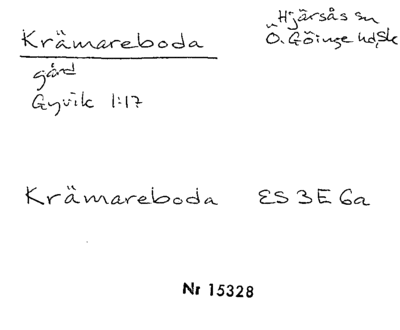 Krämareboda
Hjärsås sn
Ö. Göinge hd, Sk
gård
Gyvik 1:17
Krämareboda ES 3 E 6a
Nr 15328